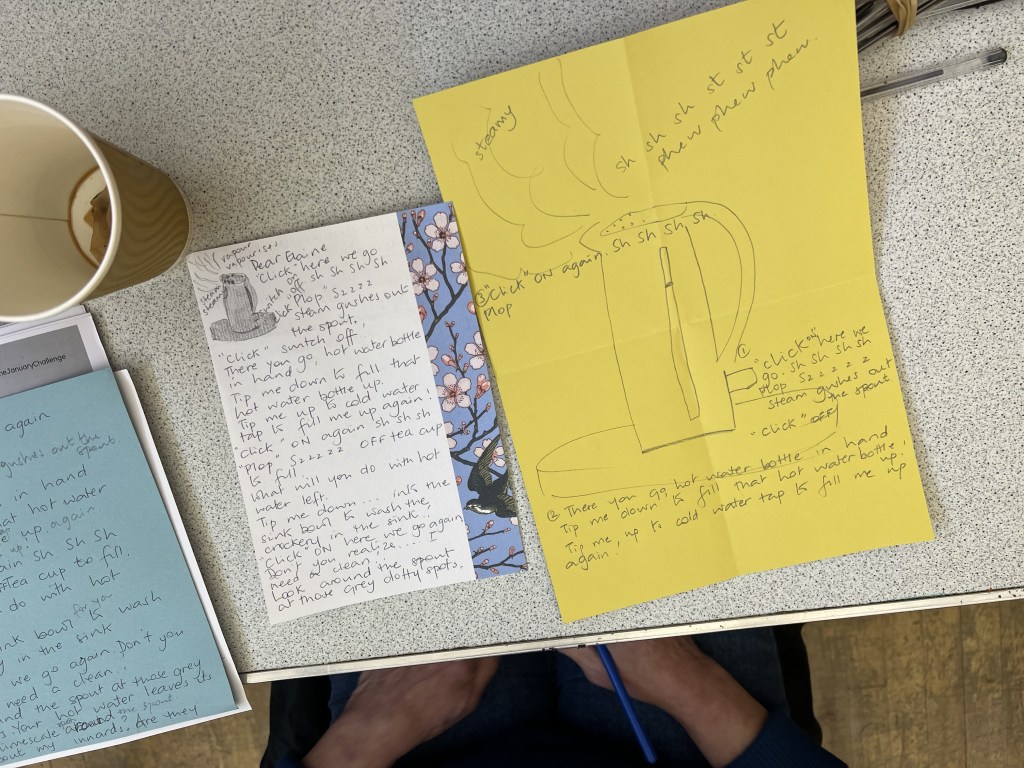 steamy
sh sh sh st st st
phew phew phew.
sh sh sh, sh
③ "Click" ON again.
Plop
①
"click" here we
go. sh sh sh sh
plop szzzz
steam gushes out
the spout
"click" off
② There you go, hot water bottle in hand
Tip me down to fill that hot water bottle up.
Tip me, up to cold water tap to fill me up
again!
vapourises
Dear Elaine
"Click", here we go
sh sh sh sh
"Plop" szzzz
steam gushes out
the spout
"Click", switch off,
There you go, hot water bottle
in hand,
Tip me down to fill that
hot water bottle up.
Tip me up to cold water
tap to fill me up again
"click" ON again sh sh sh
"plop", szzzz OFF tea cup
to fill.
What will you do with hot
water left.
Tip me down... into the
sink bowl to wash the
crockery in the sink!
Click ON here we go again,
Don't you realize... I
need a clean,
Look around the spout
at those grey dotty spots.
neJanuaryChallenge
again
gushes out the
spout.
in hand
hot water
up again
up.
sh sh sh
Tea cup to fill.
do with hot
for you
sink bowl to wash
in the sink
we go again. Don't you
need a clean!
the spout at those grey
your hot water leaves its
around the spout
out my innards? Are they